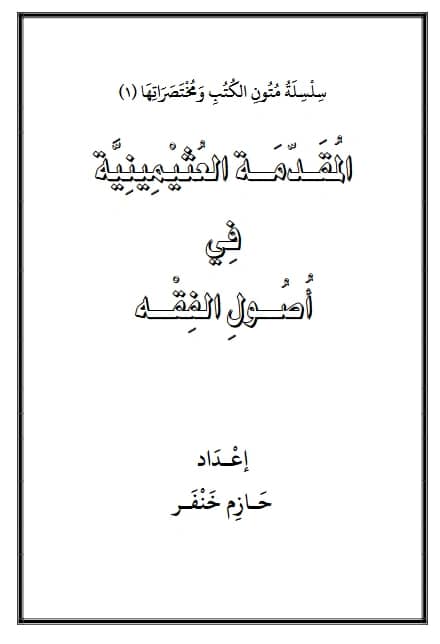 سِلْسِلَةُ مُتُونِ الكُتُبِ وَمُخْتَصَرَاتِهَا (١)
المُقَـدِّمَـــة العُثَيْمِينِيَّة
فِي
أُصُـــولِ الفِقْـــه
إعْـدَاد
حَـازِم خَنْفَـر